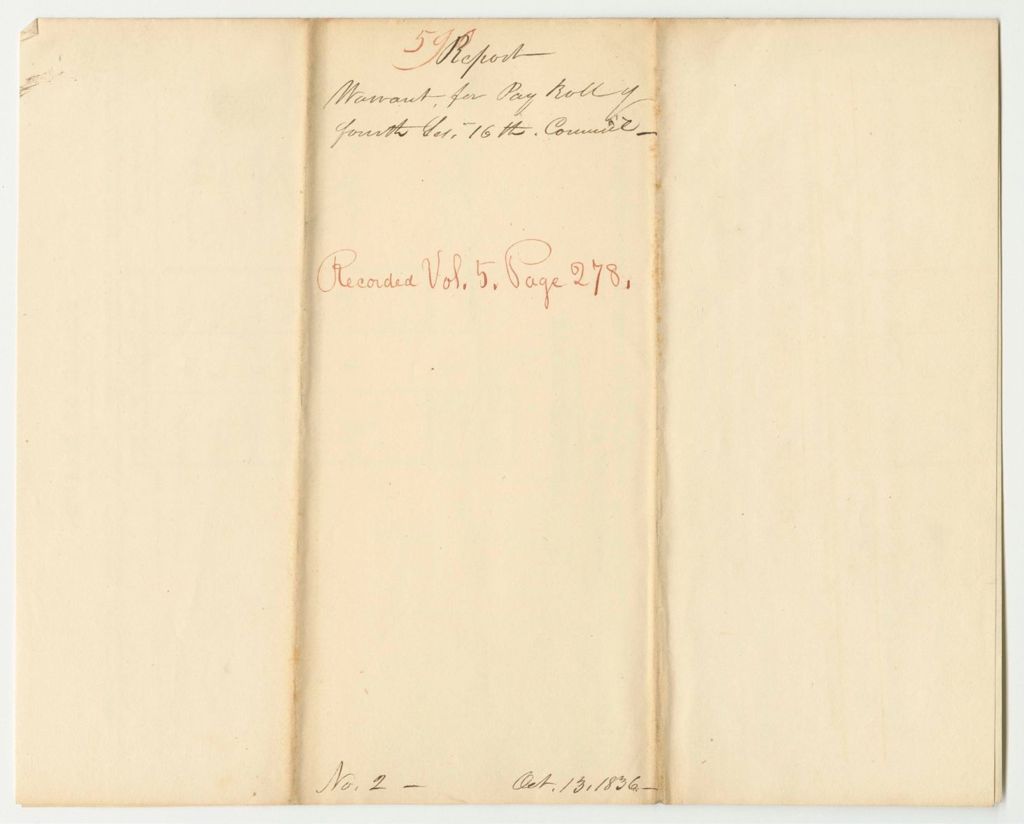 Report
Warrant, for Pay Roll of
fourth Ses. 16th. Council
Recorded Vol. 5. Page 278.
No. 2 — Oct. 13, 1836 —